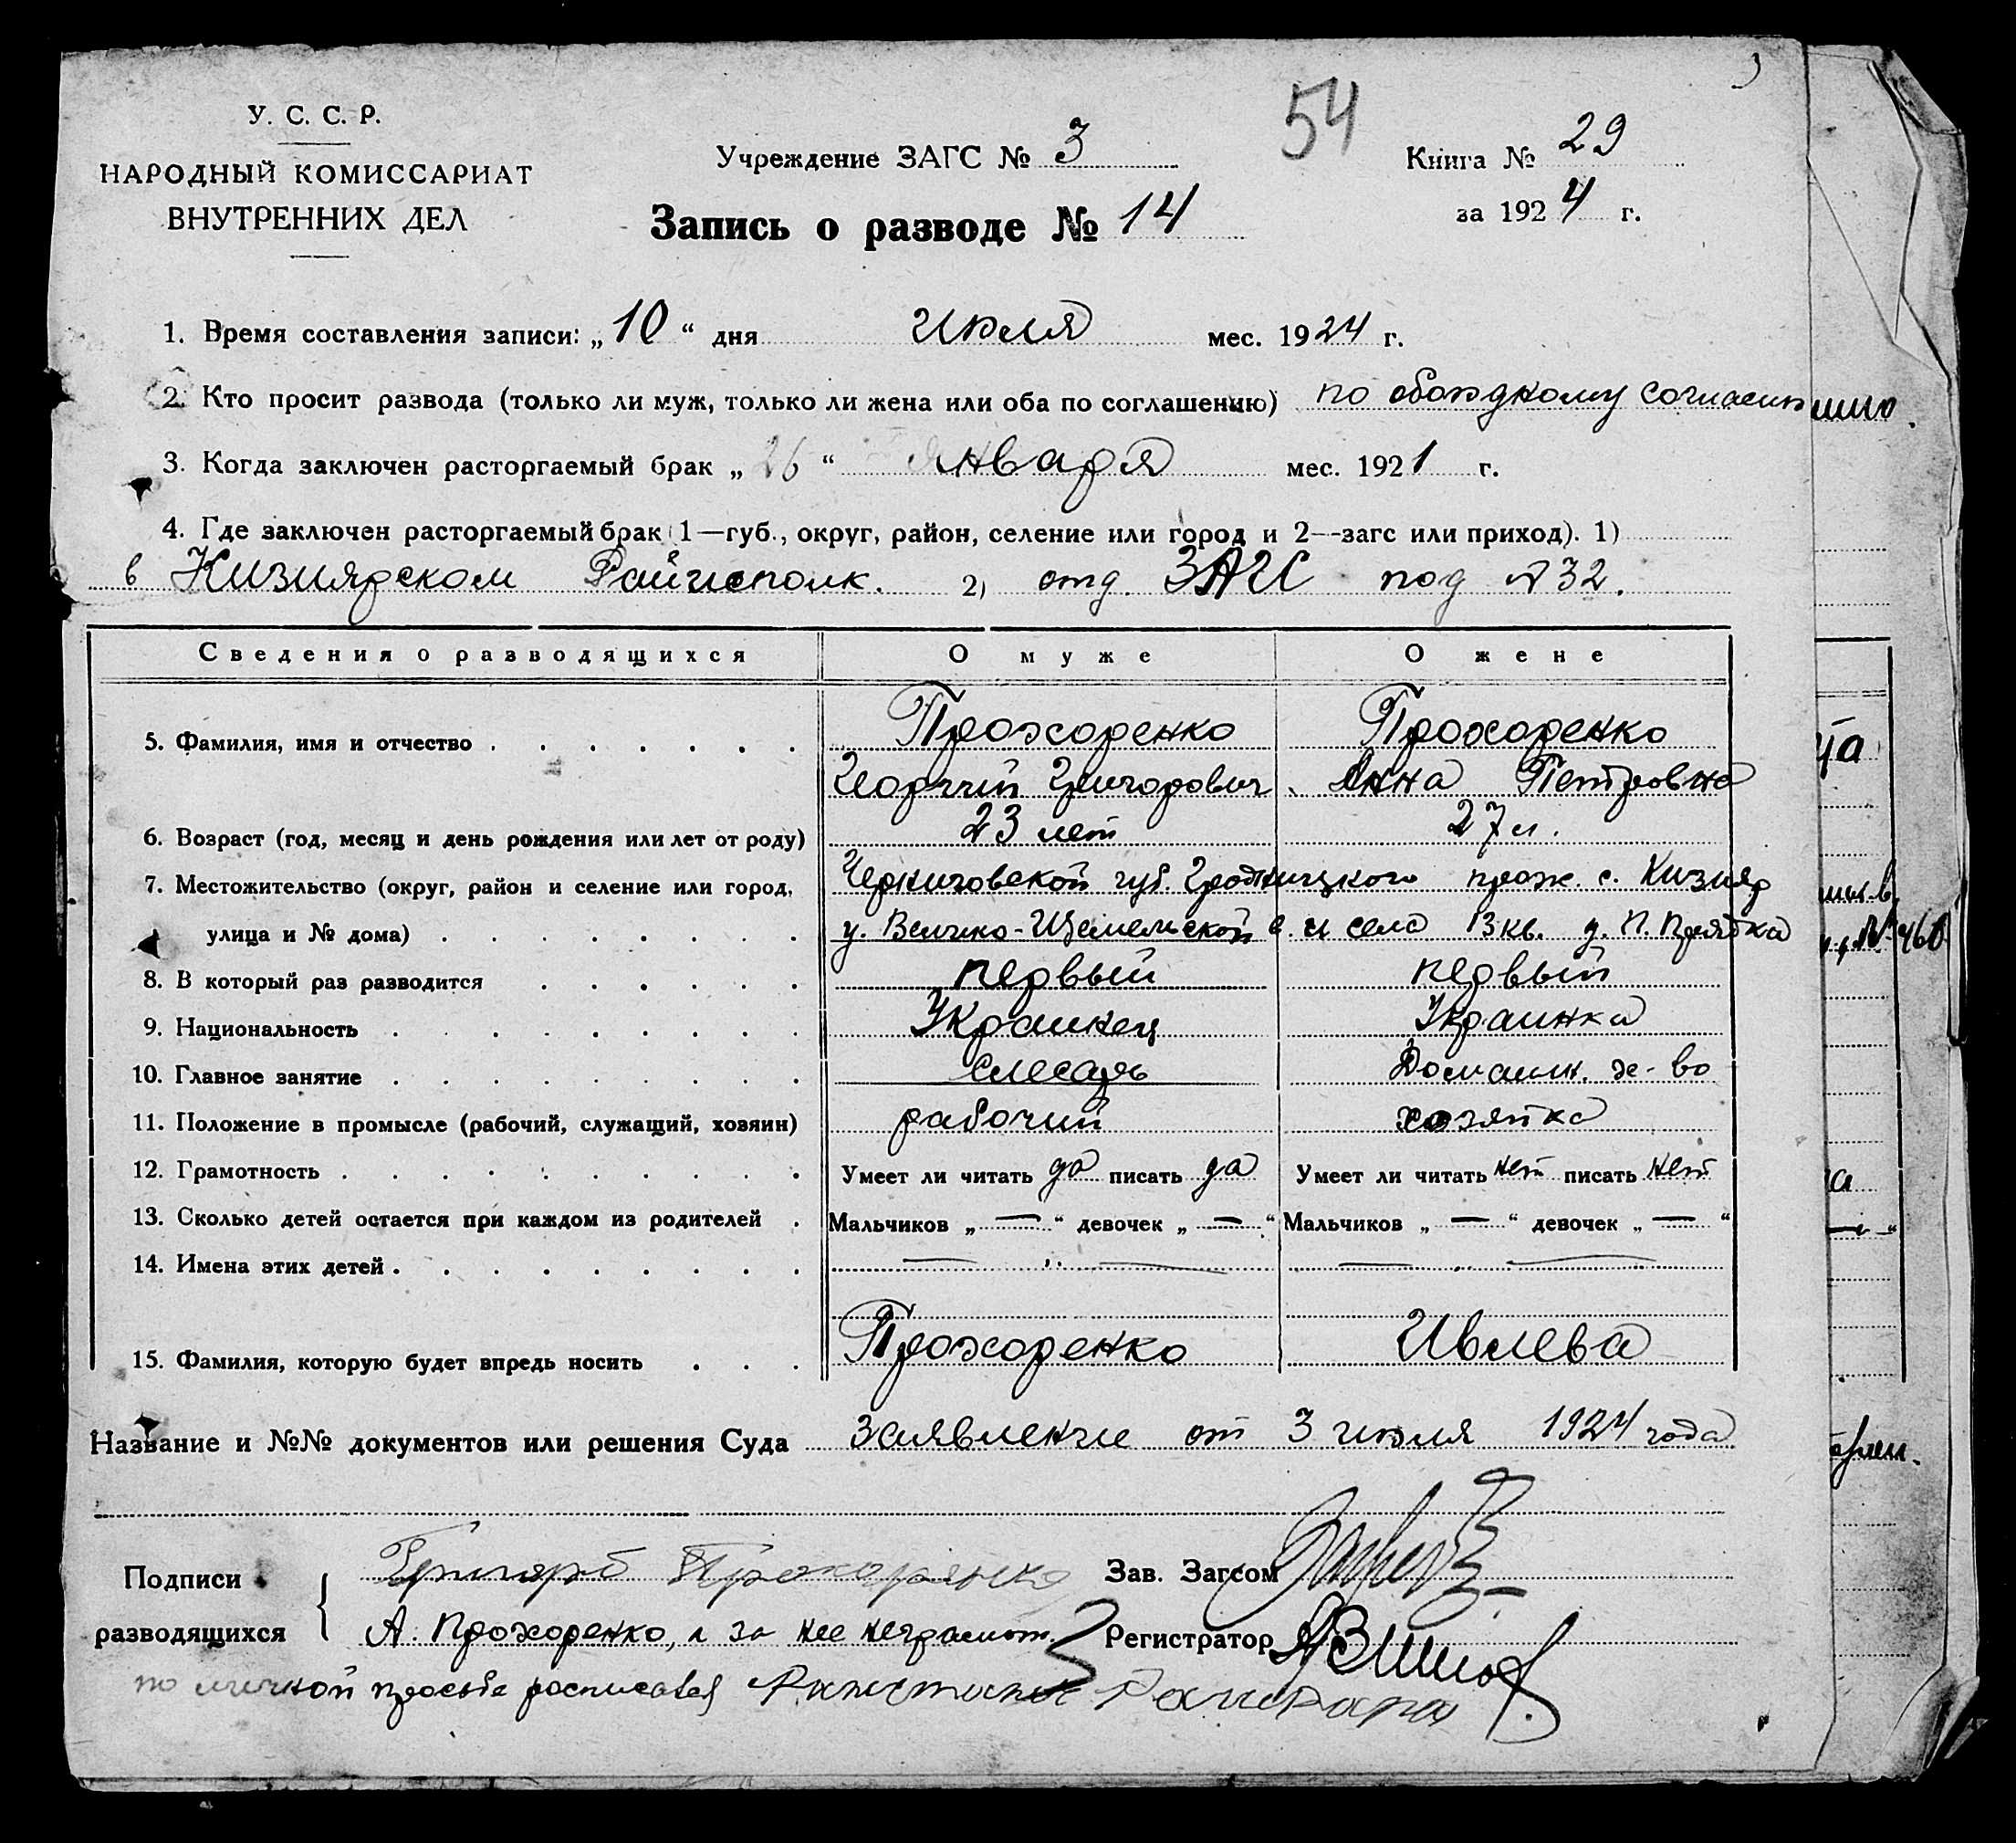 54
У. С. С. Р.
НАРОДНЫЙ КОМИССАРИАТ
ВНУТРЕННИХ ДЕЛ
Учреждение ЗАГС № 3
Книга № 29
за 1924 г.
Запись о разводе № 14
1. Время составления записи: „10“ дня Июля мес. 1924 г.
2. Кто просит развода (только ли муж, только ли жена или оба по соглашению) по обоюдному
3. Когда заключен расторгаемый брак „26“ января мес. 1921 г.
4. Где заключен расторгаемый брак (1—губ., округ, район, селение или город и 2—загс или приход). 1)
в Кизиярском Райисполк. 2) отд. ЗАГС под №32.
Сведения о разводящихся О муже О жене
5. Фамилия, имя и отчество Прохоренко Прохоренко
Георгий Григорович Анна Петровна
6. Возраст (год, месяц и день рождения или лет от роду) 23 лет 27 л.
7. Местожительство (округ, район и селение или город, Черниговской губ. прож. с. Кизияр
улица и № дома) у. в. и села 13 кв. д. П.
8. В который раз разводится первый первый
9. Национальность Украинец Украинка
10. Главное занятие слесарь Домашн. х-во
11. Положение в промысле (рабочий, служащий, хозяин) рабочий хозяйка
12. Грамотность Умеет ли читать да писать да Умеет ли читать нет писать нет
13. Сколько детей остается при каждом из родителей Мальчиков „—“ девочек „—“ Мальчиков „—“ девочек „—“
14. Имена этих детей — — — —
15. Фамилия, которую будет впредь носить Прохоренко Ивлева
Название и №№ документов или решения Суда Заявление от 3 июля 1924 года
Подписи
разводящихся
Прохоренко Зав. Загсом
А. Прохоренко, а за нее неграмот. Регистратор
по личной просьбе росписался